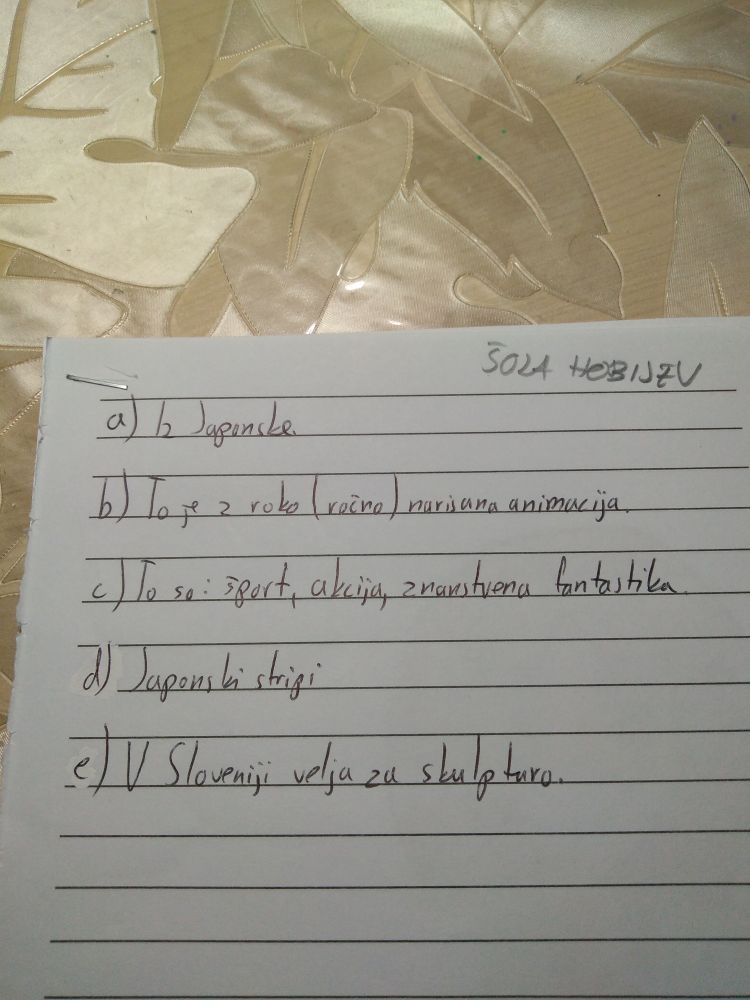 ŠOLA HOBIJEV
a) Iz Japonske.
b) To je z roko (ročno) narisana animacija.
c) To so: šport, akcija, znanstvena fantastika.
d) Japonski stripi
e) V Sloveniji velja za skulpturo.